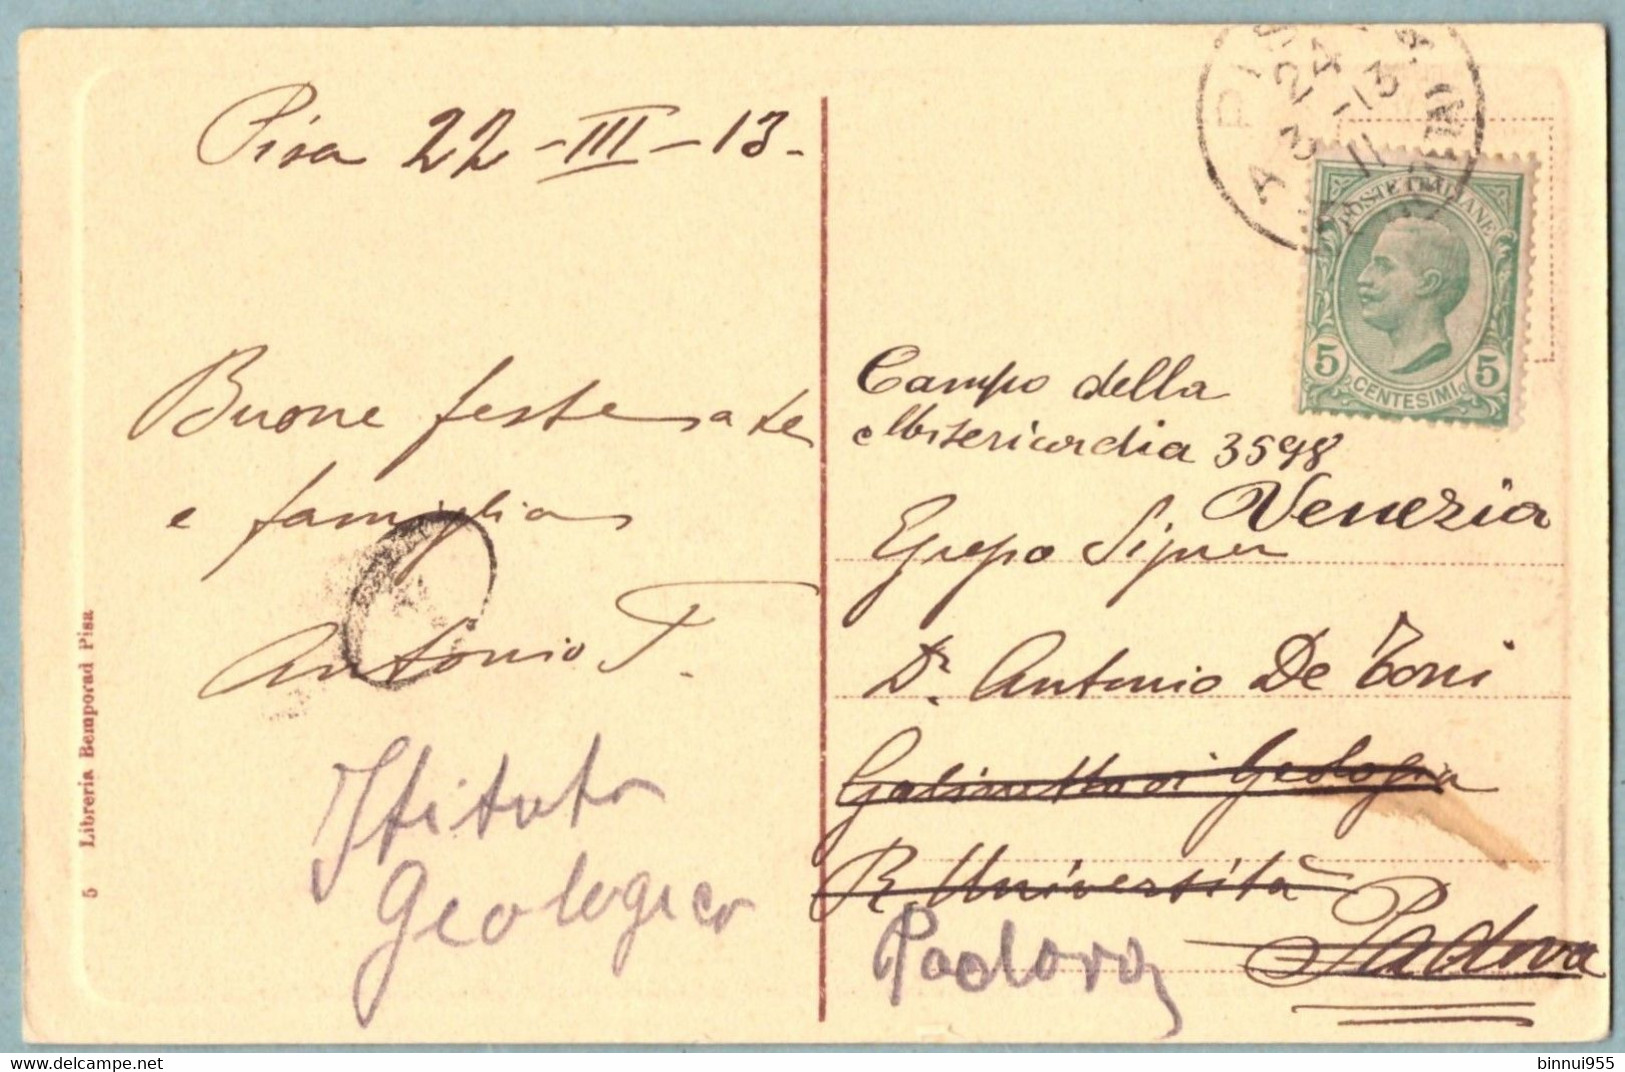 Pisa 22-III-13.
Buone feste a te
e famiglia
Antonio T.
Istituto
Geologico
5 Libreria Bemporad Pisa
PISA
24
3-13
11
POSTE ITALIANE
5 5
CENTESIMI
Campo della
Misericordia 3598
Venezia
Egregio Signor
Dr. Antonio De Toni
Gabinetto di Geologia
R. Università
Padova
Padova
www.delcampe.net
binnui955